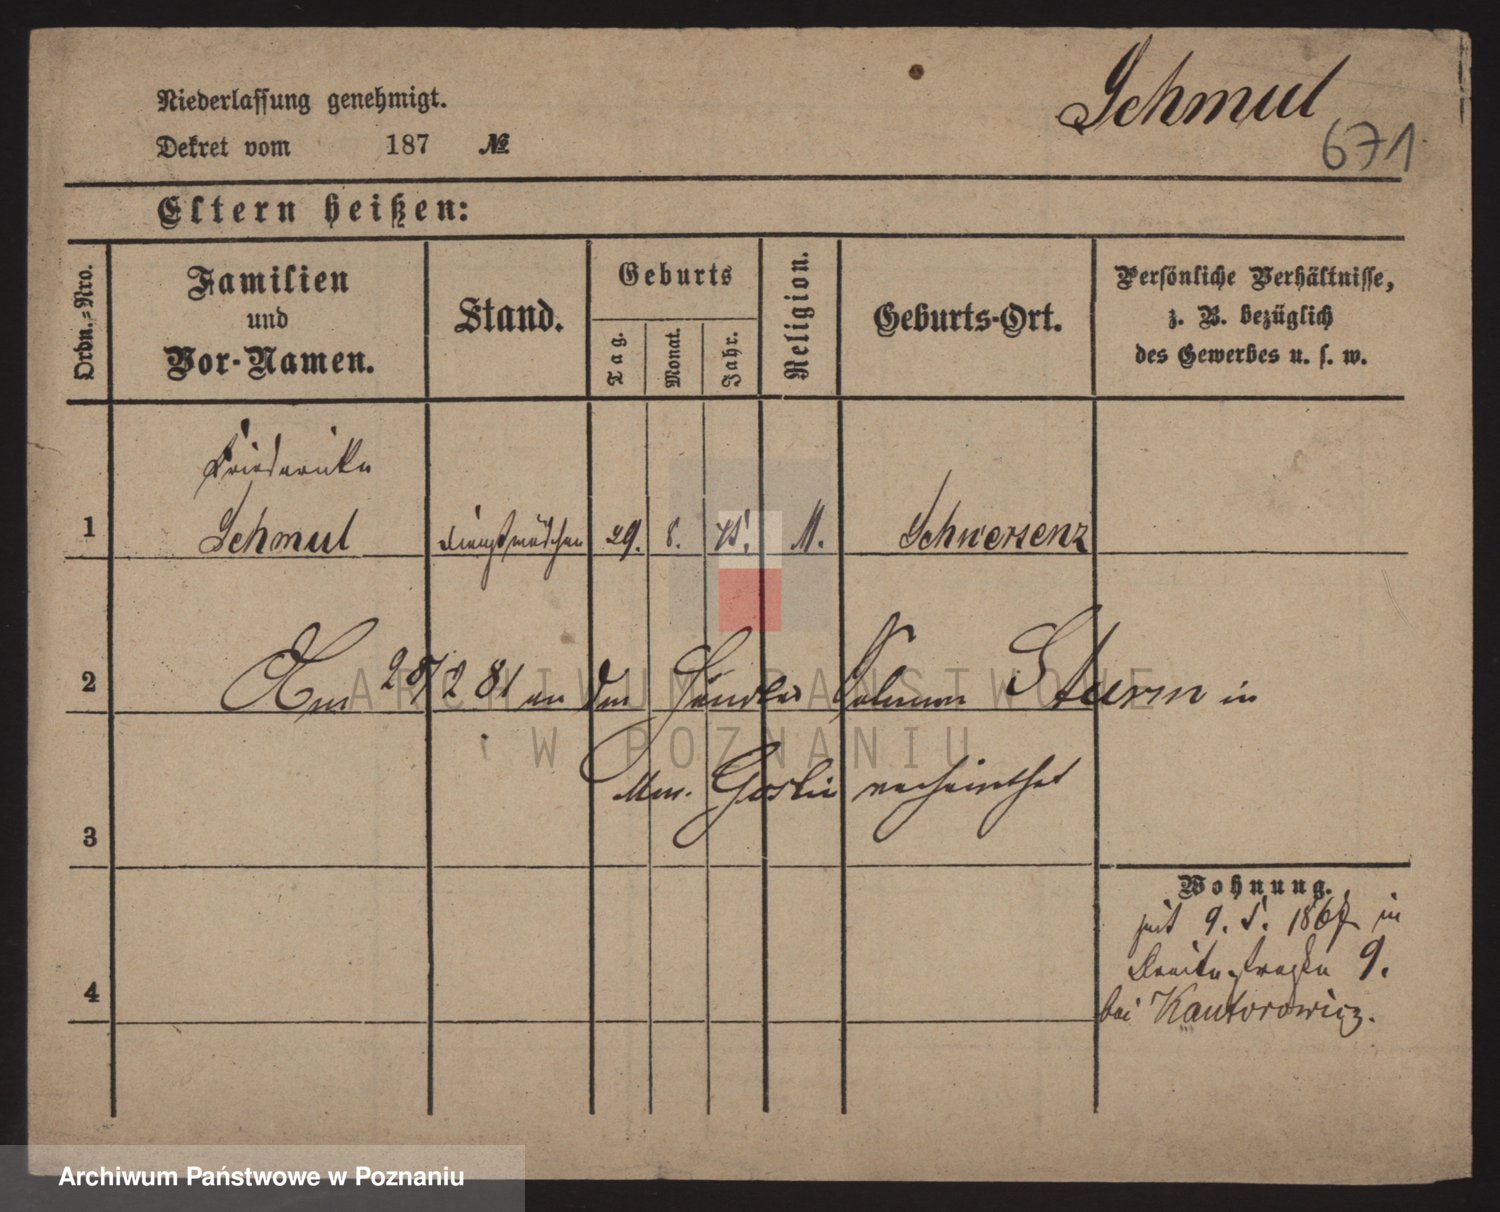 Schmul
671
Niederlassung genehmigt.
Dekret vom 187 №
Eltern heißen:
Ordn.-Nro.
Familien und Vor-Namen.
Stand.
Geburts
Tag.
Monat.
Jahr.
Religion.
Geburts-Ort.
Persönliche Verhältnisse,
z. B. bezüglich
des Gewerbes u. s. w.
Friederike
1 Schmul Dienstmädchen 29. 8. M. Schwersenz
2 Am 28/2 81 an den Händler Salomon Sturm in
Mur. Goslin verheirathet
3
Wohnung.
seit 9. 5. 1867 in
Breitestraße 9.
4
bei Kantorowicz.
ARCHIWUM PAŃSTWOWE
W POZNANIU
Archiwum Państwowe w Poznaniu